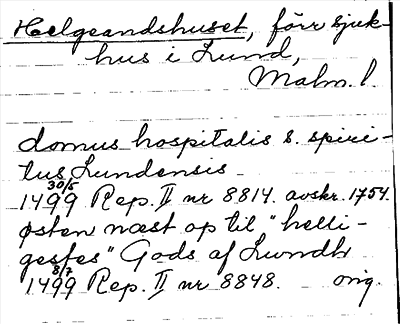 Helgeandshuset, förr sjuk-
hus i Lund,
Malm. l.
domus hospitalis s. spiri-
tus Lundensis
1499 30/5 Rep. II nr 8814. avskr. 1754.
østen næst op til "helli-
gestes" Gods af Lwndh
1499 8/7 Rep. II nr 8848. orig.